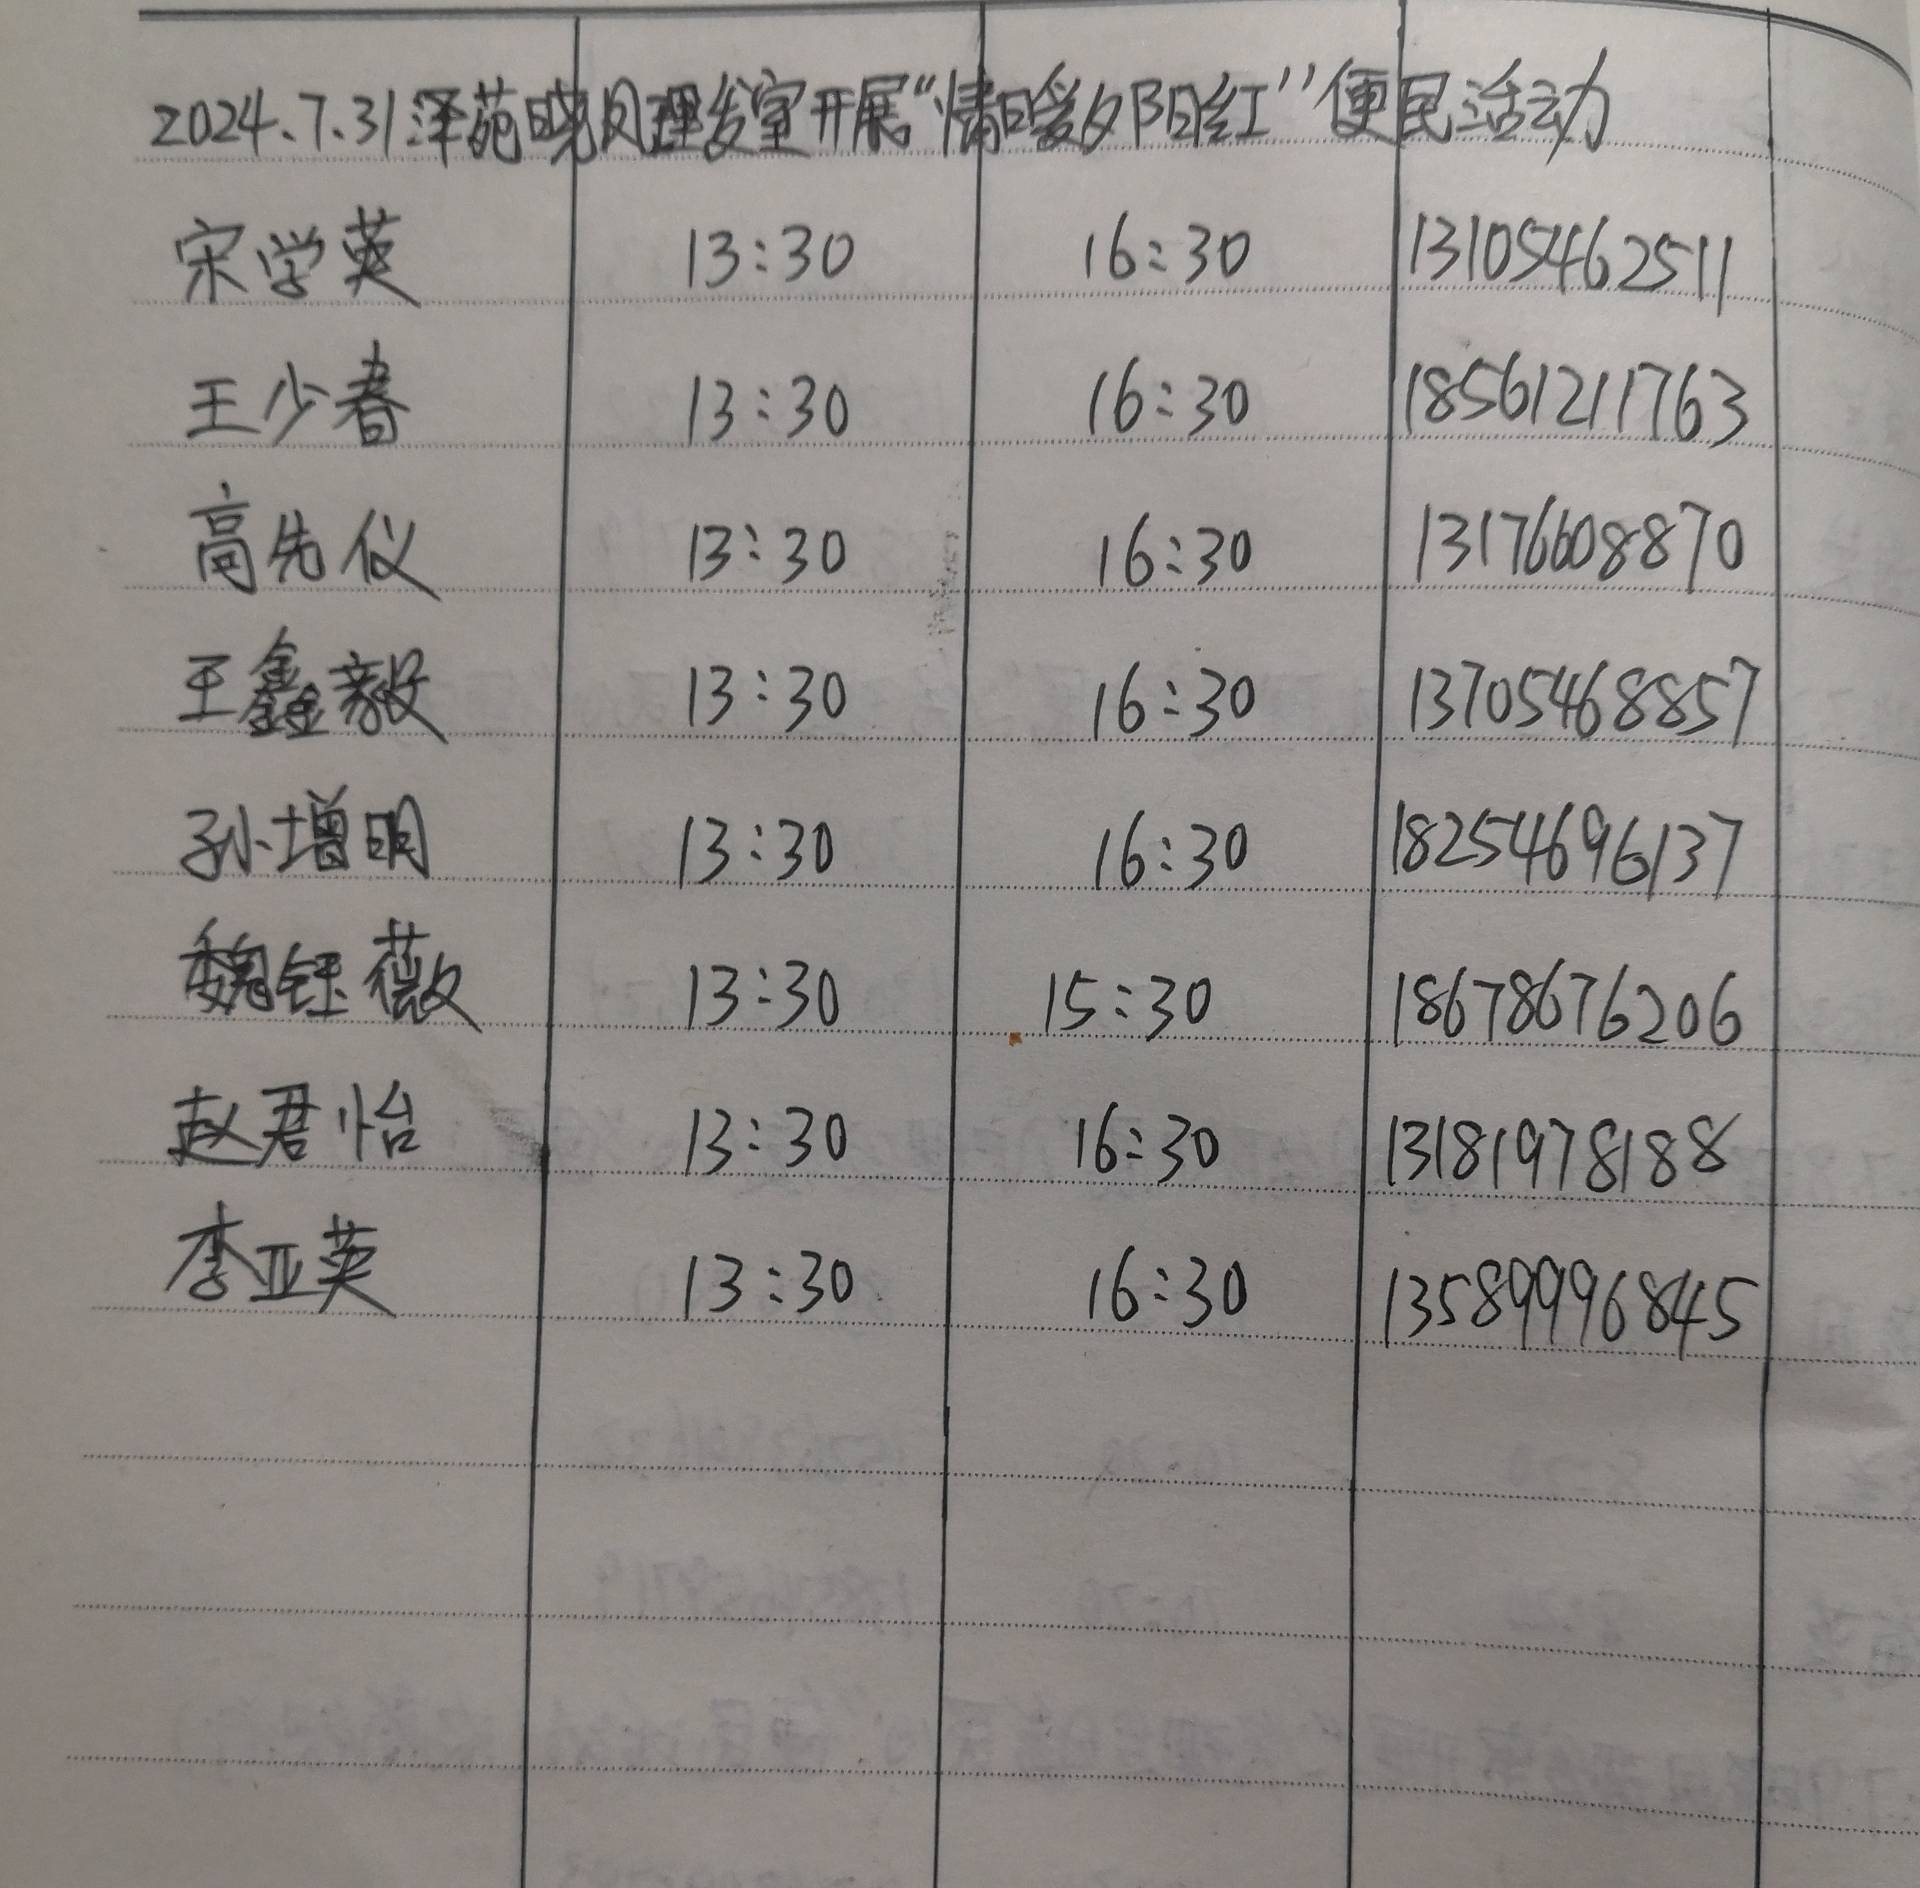 2024.7.31泽苑晓月理发室开展“情暖夕阳红”便民活动
宋学英 13:30 16:30 13105462511
王少春 13:30 16:30 18561211763
高先仪 13:30 16:30 13176608870
王鑫毅 13:30 16:30 13705468857
孙增明 13:30 16:30 18254696137
魏钰薇 13:30 15:30 18678676206
赵君怡 13:30 16:30 13181978188
李亚英 13:30 16:30 13589996845